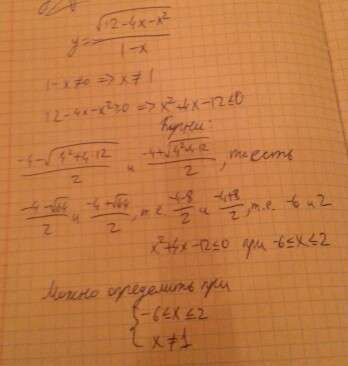 y = √(12-4x-x²) / (1-x)
1-x≠0 => x≠1
12-4x-x²≥0 => x²+4x-12≤0
Корни:
(-4-√(4²+4·12))/2 и (-4+√(4²+4·12))/2, то есть
(-4-√64)/2 и (-4+√64)/2, т.е. (-4-8)/2 и (-4+8)/2, т.е. -6 и 2
x²+4x-12≤0 при -6≤x≤2
Можно определить при
{ -6≤x≤2
x≠1